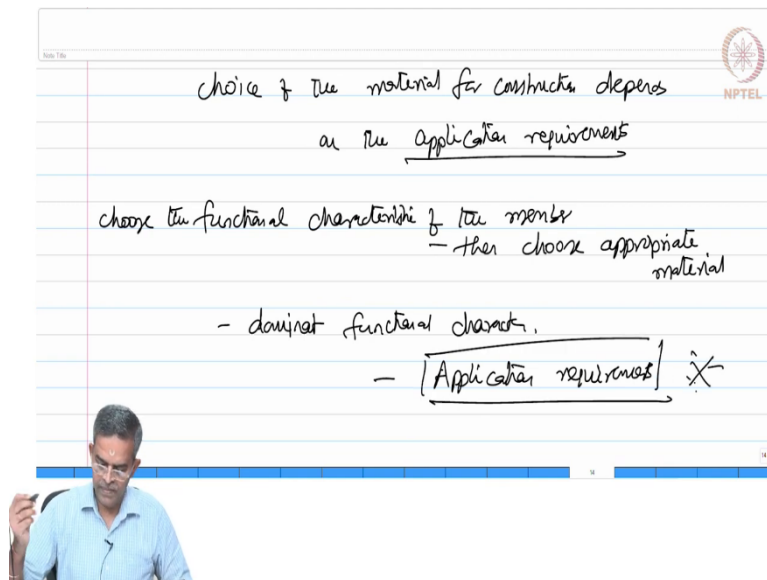 Note Title
NPTEL
choice of the material for construction depends
on the application requirements
choose the functional characteristic of the member
- then choose appropriate
material
- dominant functional character.
- [Application requirements]
14
14